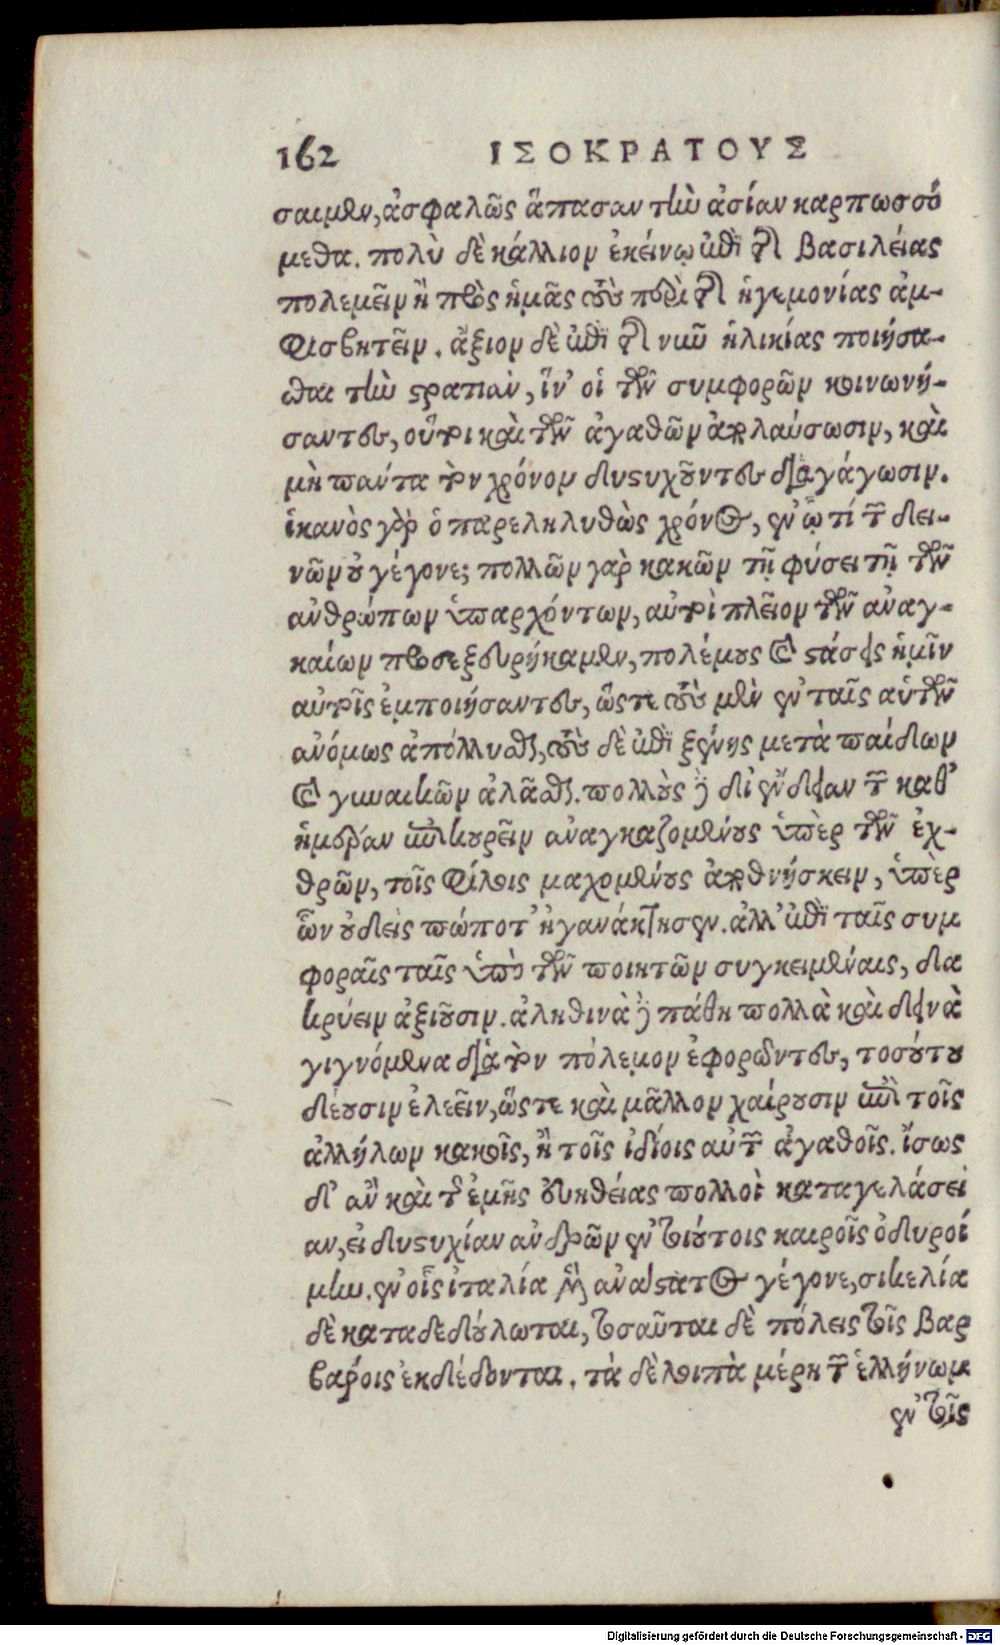 162 ΙΣΟΚΡΑΤΟΥΣ
σαιμεν, ἀσφαλῶς ἅπασαν τὴν ἀσίαν καρπωσσό
μεθα. πολὺ δὲ κάλλιον ἐκείνῳ ἐπὶ τῆς βασιλείας
πολεμεῖν ἢ πρὸς ἡμᾶς τοὺς περὶ τῆς ἡγεμονίας ἀμ-
φισβητεῖν. ἄξιον δὲ ἐπὶ τῆς νῦν ἡλικίας ποιήσα-
σθαι τὴν στρατιὰν, ἵν' οἱ τῶν συμφορῶν κοινωνή-
σαντες, οὗτοι καὶ τῶν ἀγαθῶν ἀπολαύσωσιν, καὶ
μὴ πάντα τὸν χρόνον δυστυχοῦντες διαγάγωσιν.
ἱκανὸς γὰρ ὁ παρεληλυθὼς χρόνος, ἐν ᾧ τί τῶν δει-
νῶν οὐ γέγονε; πολλῶν γὰρ κακῶν τῇ φύσει τῇ τῶν
ἀνθρώπων ὑπαρχόντων, αὐτοὶ πλεῖον τῶν ἀναγ-
καίων προσεξευρήκαμεν, πολέμους καὶ στάσεις ἡμῖν
αὐτοῖς ἐμποιήσαντες, ὥστε τοὺς μὲν ἐν ταῖς αὑτῶν
ἀνόμως ἀπόλλυσθαι, τοὺς δὲ ἐπὶ ξένης μετὰ παίδων
καὶ γυναικῶν ἀλᾶσθαι. πολλοὺς δὲ δι' ἔνδειαν τῶν καθ'
ἡμέραν ἐπικουρεῖν ἀναγκαζομένους ὑπὲρ τῶν ἐχ-
θρῶν, τοῖς φίλοις μαχομένους ἀποθνήσκειν, ὑπὲρ
ὧν οὐδεὶς πώποτ' ἠγανάκτησεν. ἀλλ' ἐπὶ ταῖς συμ
φοραῖς ταῖς ὑπὸ τῶν ποιητῶν συγκειμέναις, δα
κρύειν ἀξιοῦσιν. ἀληθινὰ δὲ πάθη πολλὰ καὶ δεινὰ
γιγνόμενα διὰ τὸν πόλεμον ἐφορῶντες, τοσούτου
δέουσιν ἐλεεῖν, ὥστε καὶ μᾶλλον χαίρουσιν ἐπὶ τοῖς
ἀλλήλων κακοῖς, ἢ τοῖς ἰδίοις αὐτῶν ἀγαθοῖς. ἴσως
δ' ἂν καὶ τῆς ἐμῆς εὐηθείας πολλοὶ καταγελάσει
αν, εἰ δυστυχίαν ἀνδρῶν ἐν τοιούτοις καιροῖς ὀδυροί
μην. ἐν οἷς ἰταλία μὲν ἀνάστατος γέγονε, σικελία
δὲ καταδεδούλωται, τοσαῦται δὲ πόλεις τοῖς βαρ
βάροις ἐκδέδονται. τὰ δὲ λοιπὰ μέρη τῶν ἑλλήνων
ἐν τοῖς
Digitalisierung gefördert durch die Deutsche Forschungsgemeinschaft - DFG